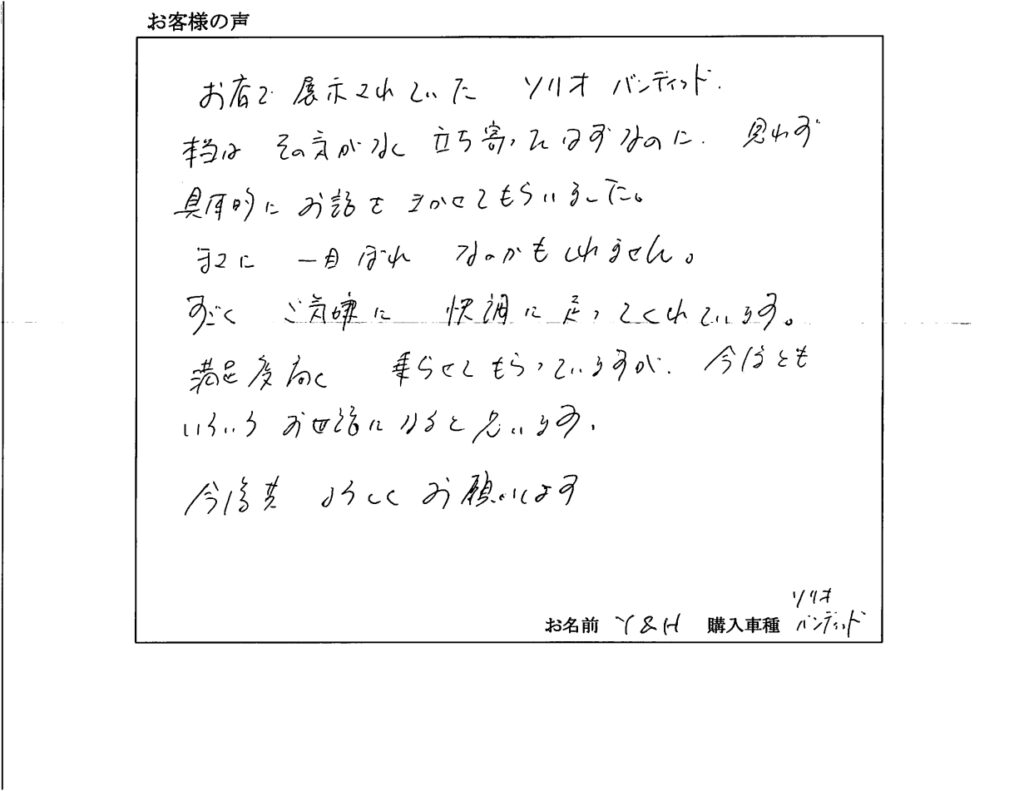 お客様の声
お店で 展示されていた ソリオ バンディット.
本当は その気がなく 立ち寄ったはずなのに. 思わず
具体的に お話を きかせてもらいました。
まさに 一目ぼれ なのかもしれません。
すごく ご気嫌に 快調に 走ってくれています。
満足度高く 乗らせてもらっていますが. 今後とも
いろいろ お世話になると思います.
今後共 よろしく お願いします
お名前 Y&H 購入車種 ソリオ
バンディット